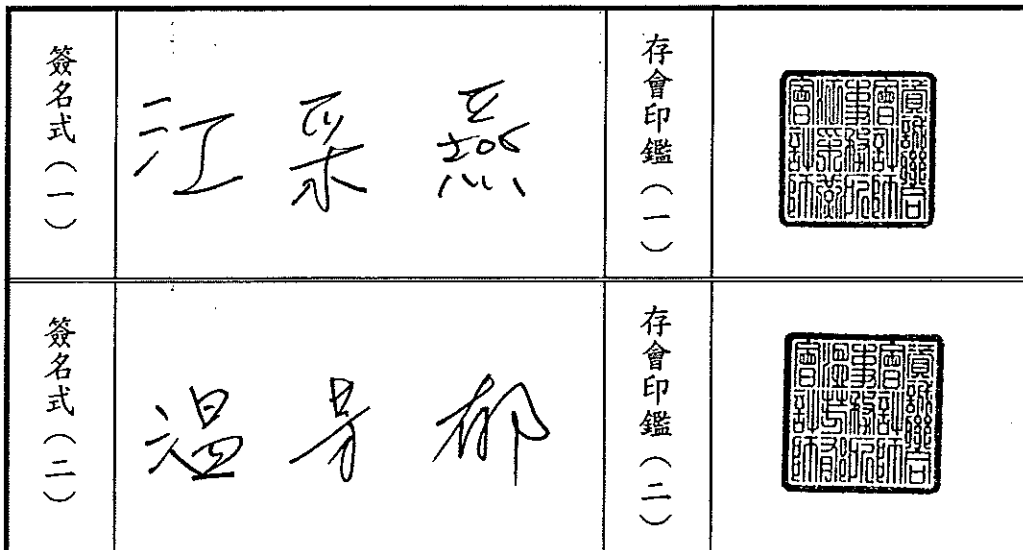 簽名式(一)
江采燕
存會印鑑(一)
資誠聯合
會計師
事務所
江采燕
會計師
簽名式(二)
溫芳郁
存會印鑑(二)
資誠聯合
會計師
事務所
溫芳郁
會計師